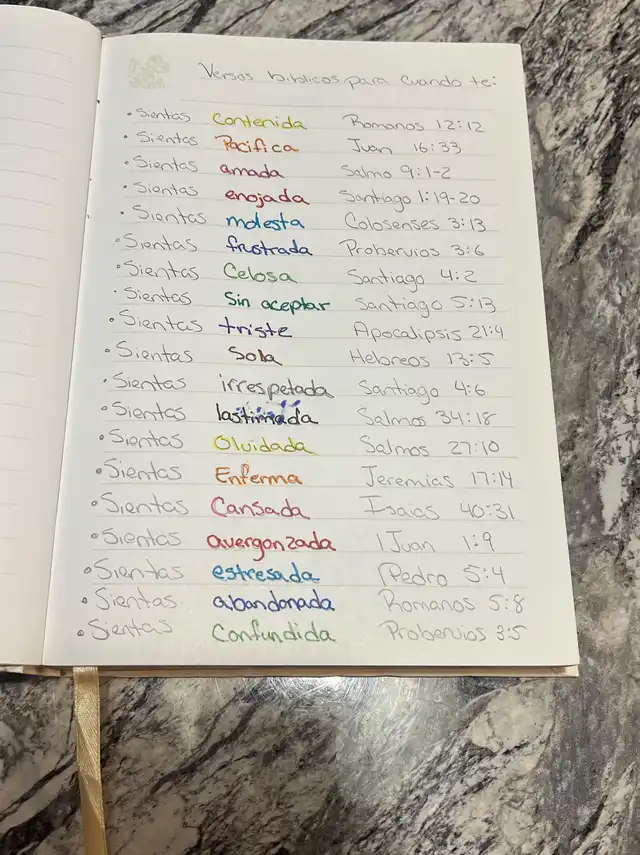 Versos biblicos para cuando te:
• Sientas Contenida Romanos 12:12
• Sientas Pacifica Juan 16:33
• Sientas amada Salmo 9:1-2
• Sientas enojada Santiago 1:19-20
• Sientas molesta Colosenses 3:13
• Sientas frustrada Probervios 3:6
• Sientas Celosa Santiago 4:2
• Sientas Sin aceptar Santiago 5:13
• Sientas triste Apocalipsis 21:4
• Sientas Sola Hebreos 13:5
• Sientas irrespetada Santiago 4:6
• Sientas lastimada Salmos 34:18
• Sientas Olvidada Salmos 27:10
• Sientas Enferma Jeremias 17:14
• Sientas Cansada Isaias 40:31
• Sientas avergonzada 1 Juan 1:9
• Sientas estresada 1 Pedro 5:4
• Sientas abandonada Romanos 5:8
• Sientas Confundida Probervios 3:5